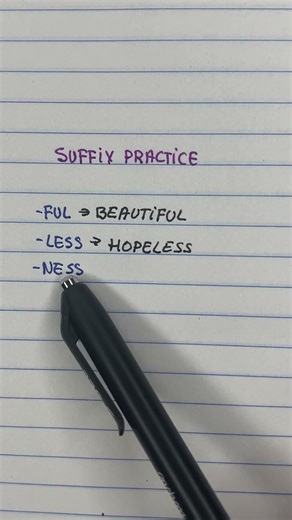 SUFFIX PRACTICE
-FUL → BEAUTIFUL
-LESS → HOPELESS
-NESS